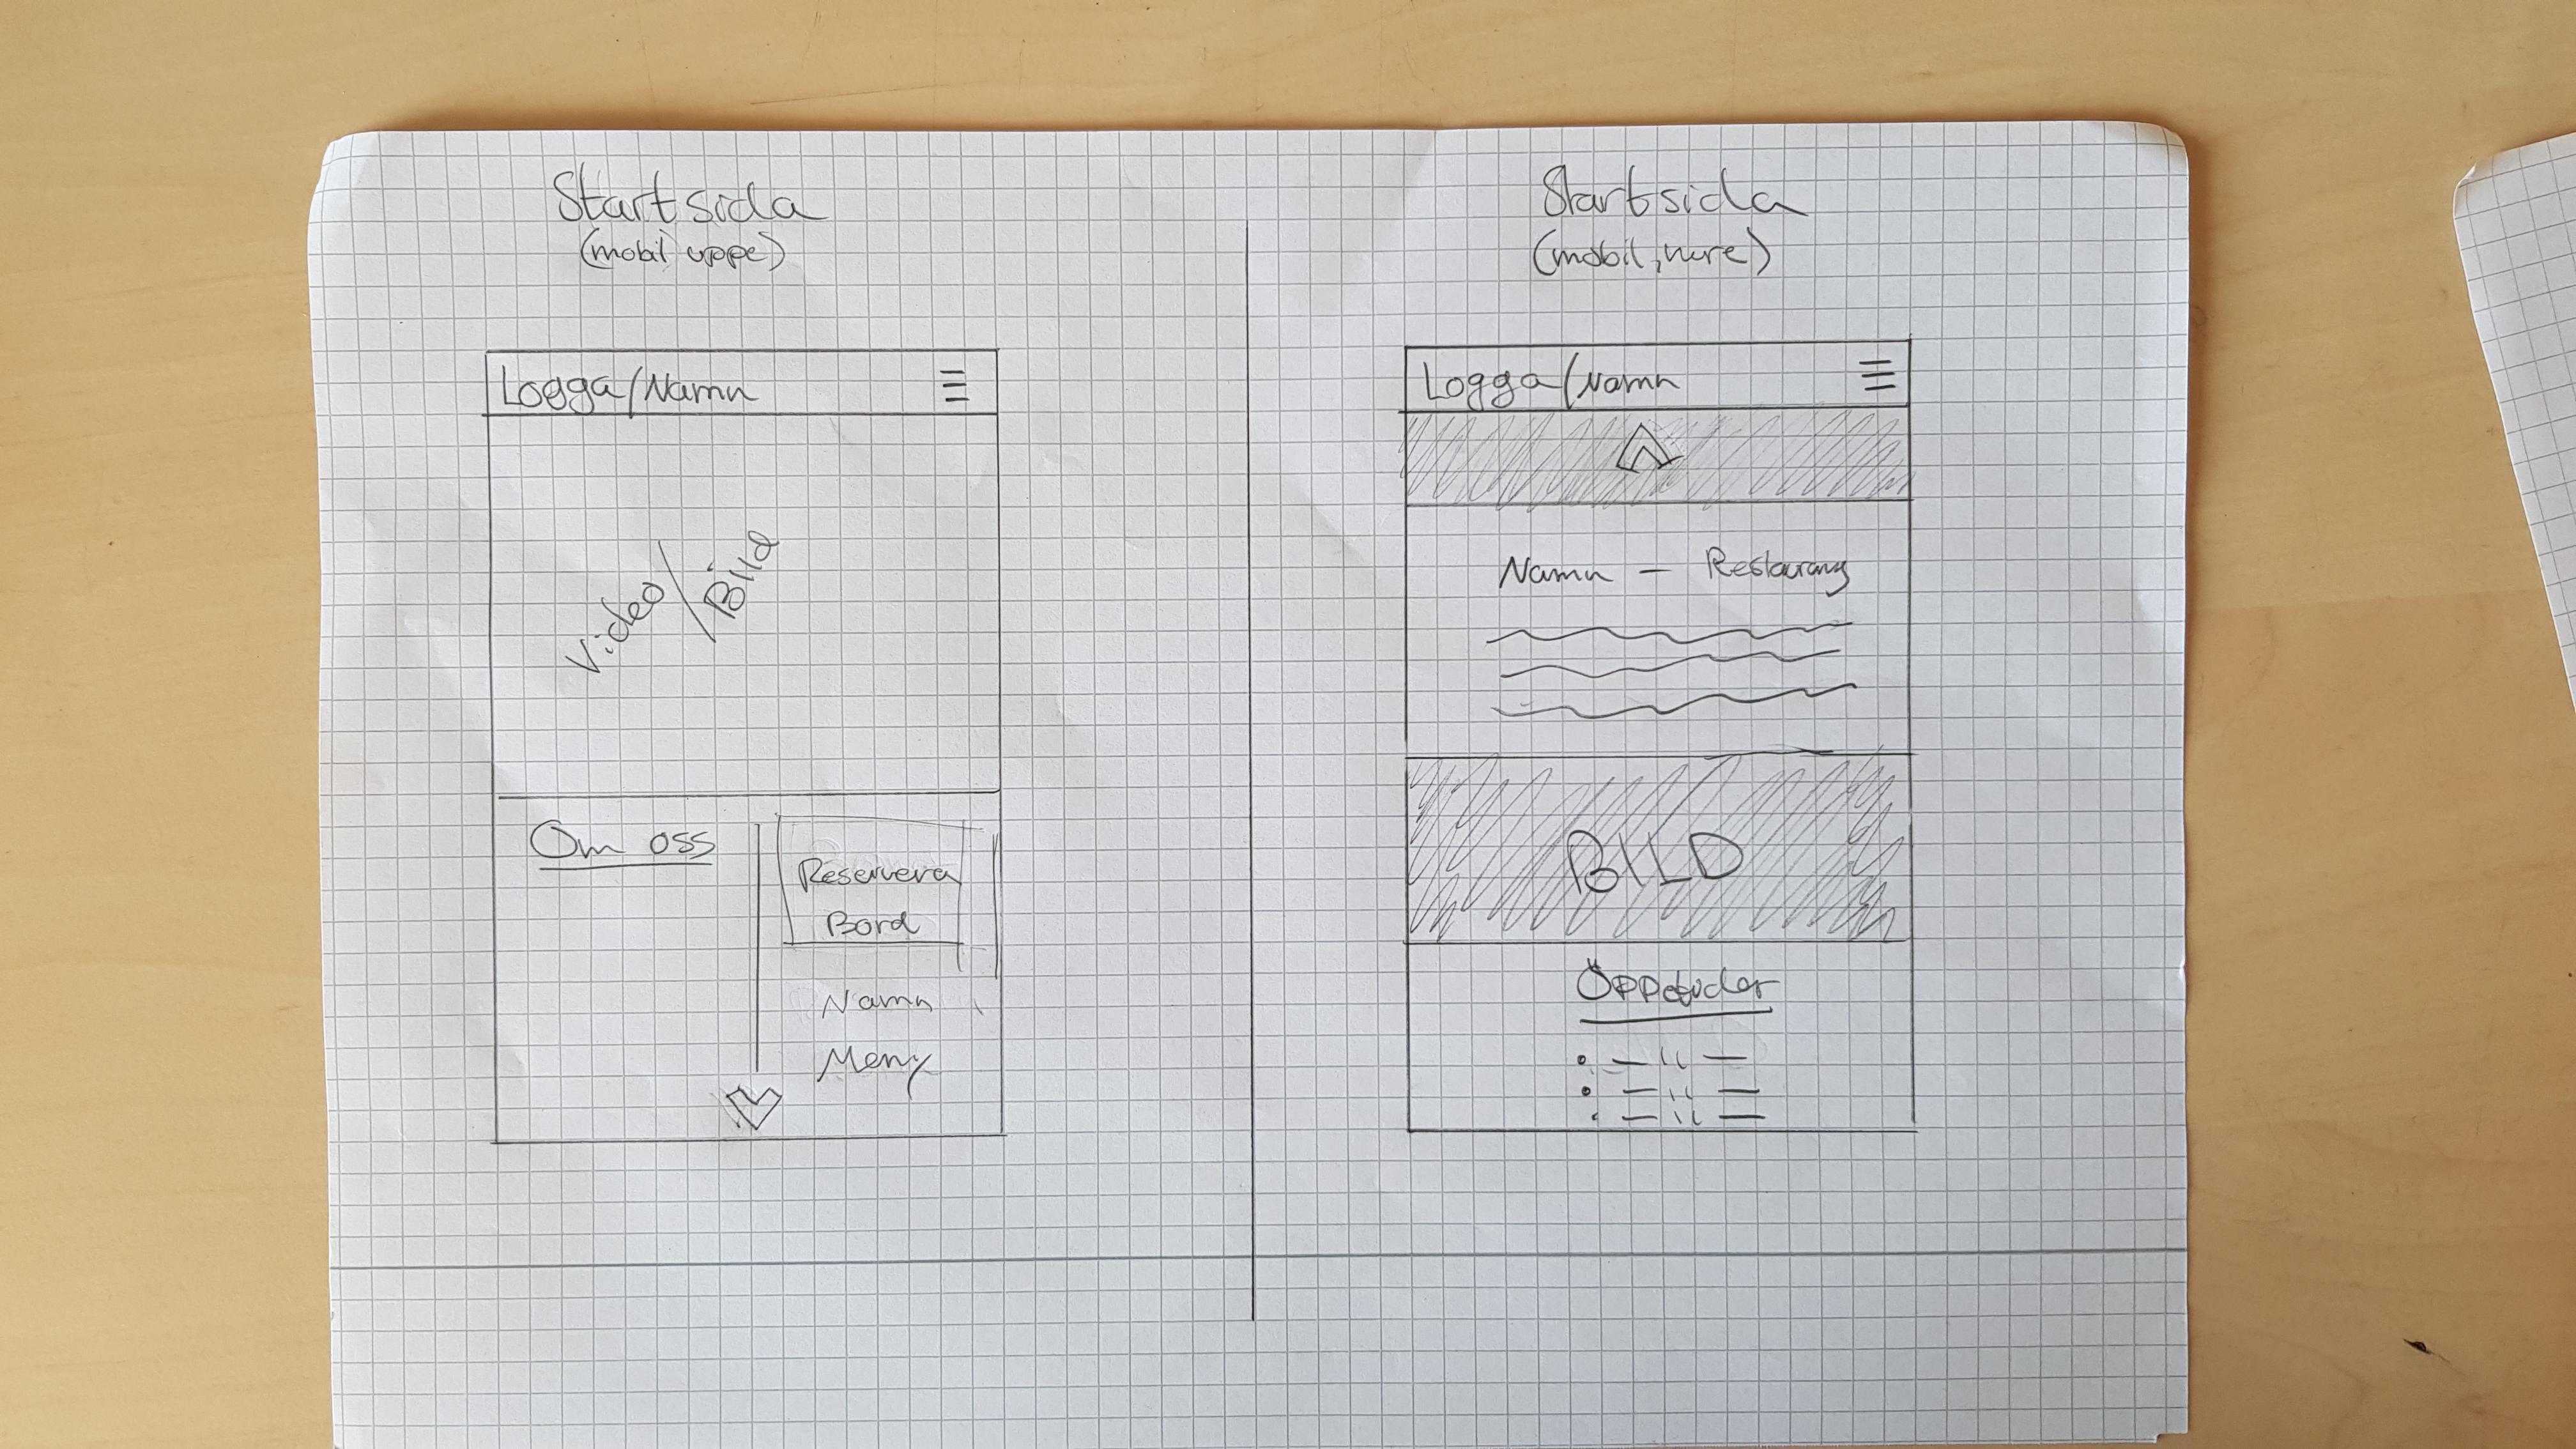 Startsida
(mobil, uppe)
Logga/Namn
Video/Bild
Om oss
Reservera
Bord
Namn
Meny
Startsida
(mobil, nere)
Logga/Namn
Namn - Restaurang
BILD
Öppetider